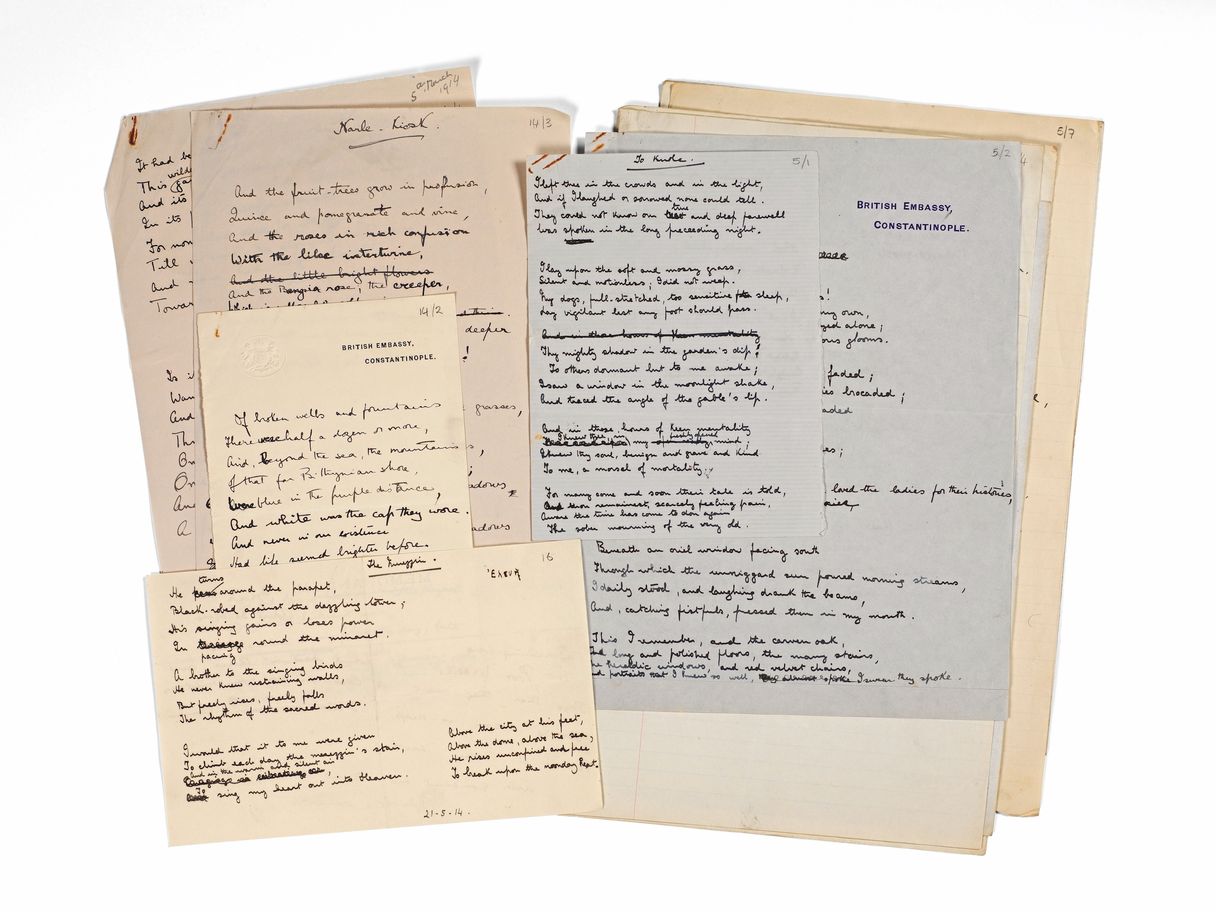 5 March
1914
It had be
This wild
And its
In its
For non
Till
And
Towar
Is i
Wan
And
Th
On
On
And
A
Narle-Kiosk.
14/3
And the fruit-trees grow in profusion,
Quince and pomegranate and vine,
And the roses in rich confusion
With the lilac intertwine,
And the little bright flowers
And the Banksia rose, the creeper,
deeper
!
grasses,
adows
adows
14/2
BRITISH EMBASSY,
CONSTANTINOPLE.
Of broken wells and fountains
There were half a dozen or more,
And, beyond the sea, the mountains
Of that far Bithynian shore,
Were blue in the purple distance,
And white was the cap they wore.
And never in our existence
Had life seemed brighter before.
The Muezzin.
16
turns
He around the parapet,
Black-robed against the dazzling tower;
His singing gains or loses power
In round the minaret.
pacing
A brother to the singing birds
He never knew restraining walls,
But freely rises, freely falls
The rhythm of the sacred words.
I would that it to me were given
To climb each day the muezzin's stair,
And in the warm and silent air
To sing my heart out into Heaven.
Above the city at his feet,
Above the dome, above the sea,
He rises unconfined and free
To break upon the noonday heat.
21-5-14.
To Knole.
5/1
I left thee in the crowds and in the light,
And if I laughed or sorrowed none could tell.
They could not know our true and deep farewell
Was spoken in the long preceeding night.
I lay upon the soft and mossy grass,
Silent and motionless; I did not weep.
My dogs, full-stretched, too sensitive for sleep,
Lay vigilant lest any foot should pass.
And in those hours of keen mentality
Thy mighty shadow in the garden's dip!
To others dormant but to me awake;
I saw a window in the moonlight shake,
And traced the angle of the gable's lip.
And in those hours of keen mentality
I knew thee in my mind;
I knew thy soul, benign and grave and kind
To me, a morsel of mortality.
For many come and soon their tale is told,
And thou remainest, scarcely feeling pain,
Aware the time has come to don again
The sober mourning of the very old.
5/2
BRITISH EMBASSY,
CONSTANTINOPLE.
!
my own,
alone;
glooms.
faded;
brocaded;
aded
es;
loved the ladies for their histories,
Beneath an oriel window facing south
Through which the unniggard sun poured morning streams,
I daily stood, and laughing drank the beams,
And, catching fistfuls, pressed them in my mouth.
This I remember, and the carven oak,
long and polished floors, the many stairs,
heraldic windows, and red velvet chairs,
portraits that I knew so well, I swear they spoke.
4
5/7